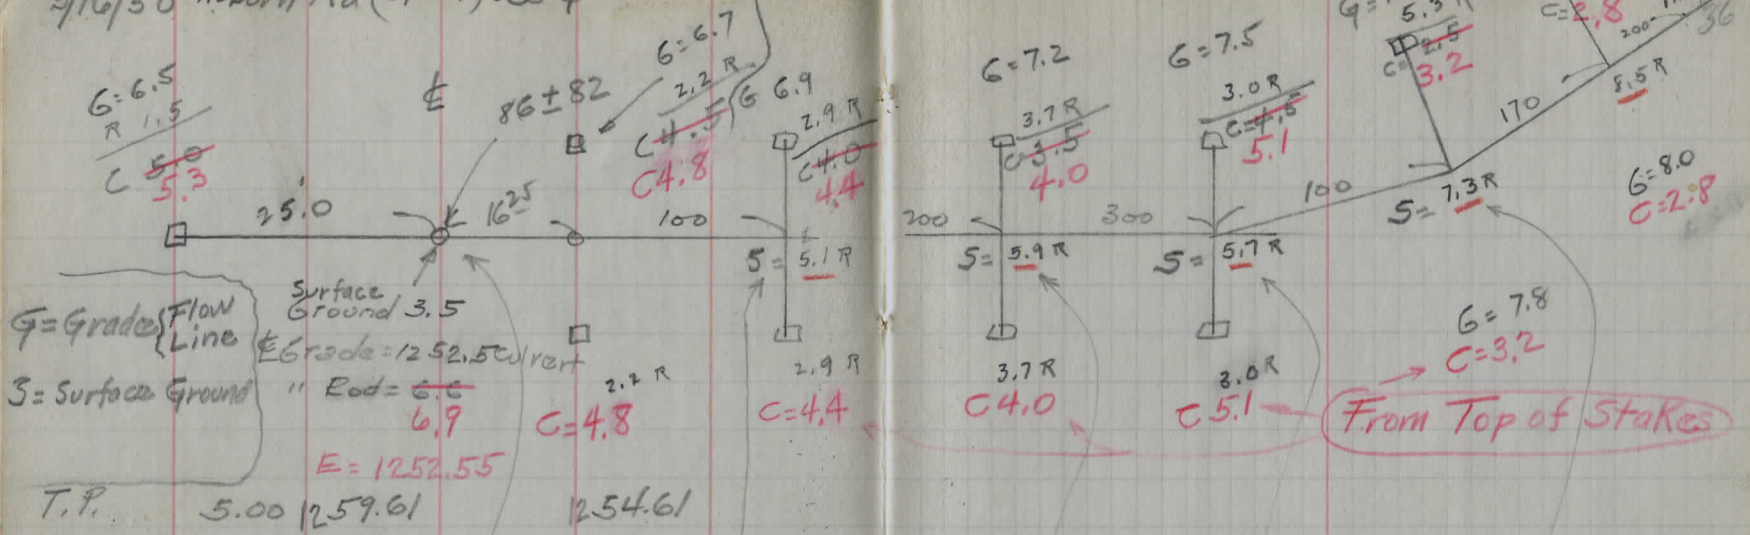 G=6.5
R 1.5
C 5.0
5.3
℄
86±82
G=6.7
2.2 R
C4.5
C4.8
G 6.9
2.9 R
C4.0
4.4
G=7.2
3.7 R
C3.5
4.0
G=7.5
3.0 R
C=4.5
5.1
5.3 R
C=2.5
3.2
C=2.8
200
36
5.5 R
170
G=8.0
C=2.8
25.0
16 25
100
200
300
100
S= 5.1 R
S= 5.9 R
S= 5.7 R
S= 7.3 R
G=Grade {Flow Line
S=Surface Ground
Surface
Ground 3.5
℄ Grade=1252.5 Culvert
" Rod= 6.6
6.9
E=1252.55
2.2 R
C=4.8
2.9 R
C=4.4
3.7 R
C4.0
3.0 R
C5.1
G=7.8
C=3.2
From Top of Stakes
T.P. 5.00 1259.61 1254.61